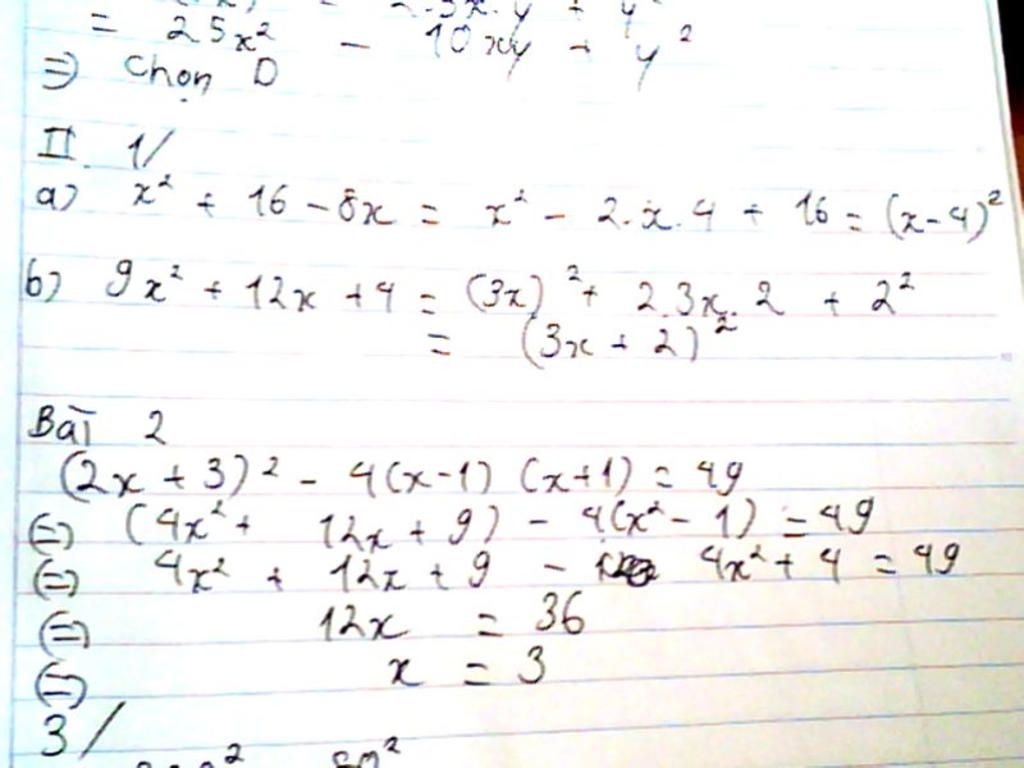 = 25x² - 10xy + y²
⇒ Chọn D
II. 1/
a) x² + 16 - 8x = x² - 2.x.4 + 16 = (x-4)²
b) 9x² + 12x + 4 = (3x)² + 2.3x.2 + 2²
= (3x + 2)²
Bài 2
(2x + 3)² - 4(x-1) (x+1) = 49
⇔ (4x² + 12x + 9) - 4(x² - 1) = 49
⇔ 4x² + 12x + 9 - 4x² + 4 = 49
⇔ 12x = 36
⇔ x = 3
3/